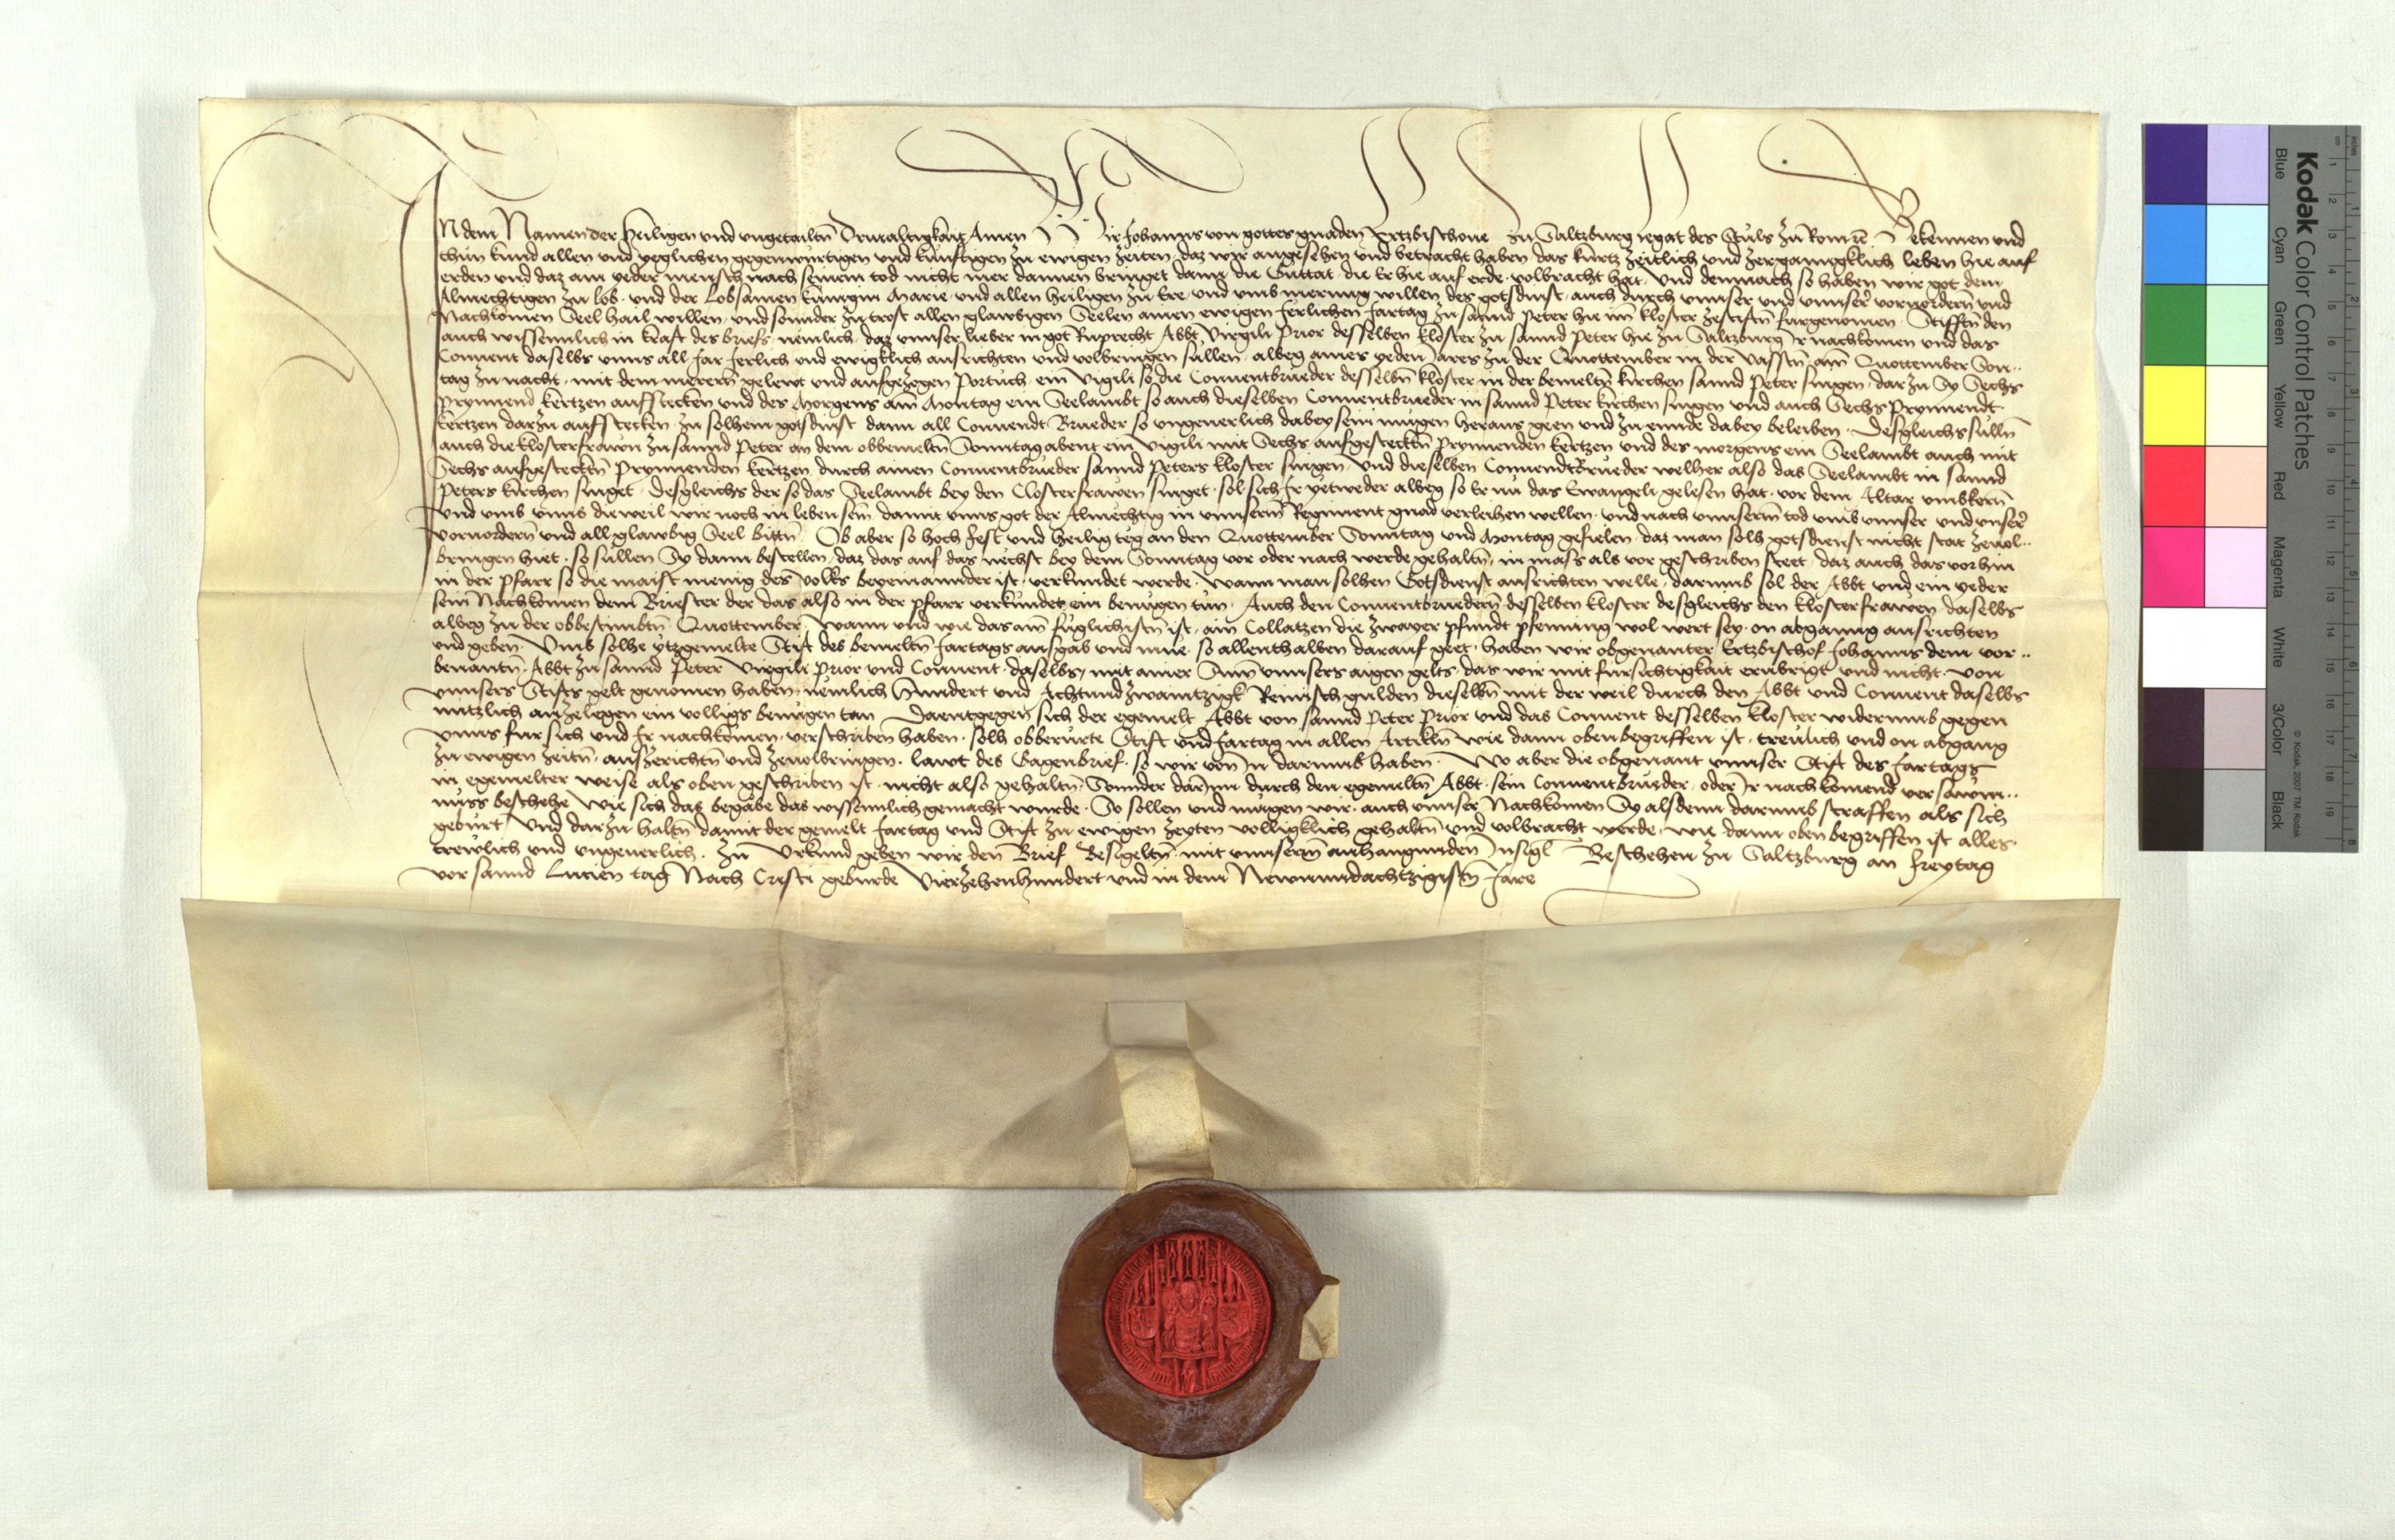 In dem Namen der heiligen und ungetailtn Drivaltigkait Amen Wir Johanns von gottes gnaden Ertzbischove zu Saltzburg legat des Stuls zu Rom ꝛc̄ Bekennen und
thun kund allen und yeglichen gegenwurtigen und kunftigen zu ewigen zeiten, daz wir angesehen und betracht haben das kurtz zeitlich und zerganngklich leben hie auf
erden und daz ain yeder mensch nach seinem tod nicht mer dannen bringet dann die Guttat die Er hie auf erde volbracht hat, Und demnach so haben wir got dem
Almechtigen zu lob und der Lobsamen kunigin Marie und allen heiligen zu Ere und umb merung willen des gotsdinst, auch durch unnser und unnser vorvordern und
Nachkomen Seel hail willen, und sonnder zu trost allen glawbigen Seelen ainen ewigen Jerlichen Jartag zu sannd Peter hie im kloster zestiftn furgenomen, Stifftn den
auch wissenntlich in kraft des briefs, nemlich, daz unnser lieber in got Ruprecht Abbt, Virgili Prior desselben kloster zu sannd Peter hie zu Saltzburg Ir nachkomen und das
Convent daselbs unns all Jar Jerlich und ewigklich ausrichten und volbringen sullen albeg aines yeden Jares zu der Quottember in der Vasstn am Quottember Son..
tag zu nacht, mit dem merern gelewt und aufgezogen Portuch, ein Vigili so die Conventbrueder desselbn kloster in der bemeltn kirchen sannd Peter singen, darzu Sy Sechs
prynnend kertzen aufstecken und des Morgens am Montag ein Seelambt so auch dieselben Conventbrueder in sannd Peter kirchen singen und auch Sechs Prynnendt
kertzen darzu aufstecken, zu solhem gotsdinst dann all Convendt Brueder so ungeverlich dabey sein mugen heraus geen und zu ennde dabey beleiben. Desgleichs sulln
auch die klosterfrawn zu sannd Peter an dem obbemeltn Sonntag abent ein Vigili mit Sechs aufgestecktn prynnenden kertzen und des morgens ein Seelambt auch mit
Sechs aufgestecktn prynnenden kertzen, durch ainen Conventbrueder sannd Peters kloster singen, und dieselben Convendtbrueder welher also das Seelambt in sannd
Peters kirchen singet, desgleichs der so das Seelambt bey den Closterfrawen singet, sol sich Ir yetweder albeg so Er nu das Ewangeli gelesen hat, vor dem Altar umbkern
und umb unns dieweil wir noch in leben sein, damit unns got der Almechtig in unnserm Regiment gnad verleihen wellen, und nach unnserm tod umb unnser und unser
vorvordern und all glawbig Seel bittn. Ob aber so hoch fest und heilig teg an den Quottember Sonntag und Montag gefielen, daz man solh gotsdienst nicht stat zevol..
bringen hiet, so sullen Sy dann bestellen, daz das auf das nechst bey dem Sonntag vor oder nach werde gehaltn, in mass als vor geschriben steet, daz auch das vorhin
in der Pfarr so die maist menig des volks beyeinannder ist, verkundet werde, wann man solhen Gotsdienst ausrichten welle, darumb sol der Abbt und ein yeder
sein Nachkomen dem Briester der das also in der pfarr verkundet ein benugen tun. Auch den Conventbruedern desselben kloster desgleichs den klosterfrawen daselbs
albeg zu der obbestimbtn Quottember, wann und wie das am fuglichistn ist, ain Collatzen die zwayer pfundt pfenning wol wert sey, on abganng ausrichten
und geben. Umb solhe ytzgemelte Stift des bemeltn Jartags ausgab und mue, so allenthalben darauf geet, haben wir obgenanter Ertzbischof Johanns dem vor..
benantn Abbt zu sannd Peter Virgili Prior und Convent daselbs, mit ainer Sum unnsers aigen gelts, das wir mit fursichtigkait erubrigt und nicht von
unnsers Stifts gelt genomen haben, nemlich Hundert und Achtundzwaintzigk Reinisch gulden dieselbn mit der weil durch den Abbt und Convent daselbs
nutzlich anzelegen ein volligs benugen tan. Daentgegen sich der egemelt Abbt von sannd Peter Prior und das Convent desselben kloster widerumb gegen
unns fur sich und Ir nachkomen verschriben haben, solh obberurte Stift und Jartag in allen Artikln wie dann oben begriffen ist, treulich und on abgang
zu ewigen zeitn, auszerichtn und zevolbringen, lawt des Gagenbrief, so wir von In darumb haben. Wo aber die obgenant unnser Stift des Jartags
in egemelter weise als oben geschriben ist, nicht also gehaltn, Sonnder darInn durch den egemeltn Abbt, sein Conventbrueder, oder Ir nachkomend versawm..
nuss beschehe wie sich das begabe das wissenntlich gemacht wurde, So sollen und mugen wir, auch unnser Nachkomen Sy alsdenn darumb straffen als sich
geburt, Und darzu haltn damit der gemelt Jartag und Stift zu ewigen Zeyten volligklich gehaltn und volbracht werde, wie dann oben begriffen ist alles
trewlich und ungeverlich. Zu Urkund geben wir den Brief Besigeltn mit unnserm anhangunden Insigl Beschehen zu Saltzburg an Freytag
vor sannd Lucien tag Nach Cristi geburde Vierzehenhundert und in dem Newnundachtzigistn Jare
Kodak Color Control Patches
© Kodak, 2007 TM: Kodak
Blue Cyan Green Yellow Red Magenta White 3/Color Black
inches 1 2 3 4 5 6 7 8
cm 1 2 3 4 5 6 7 8 9 10 11 12 13 14 15 16 17 18 19